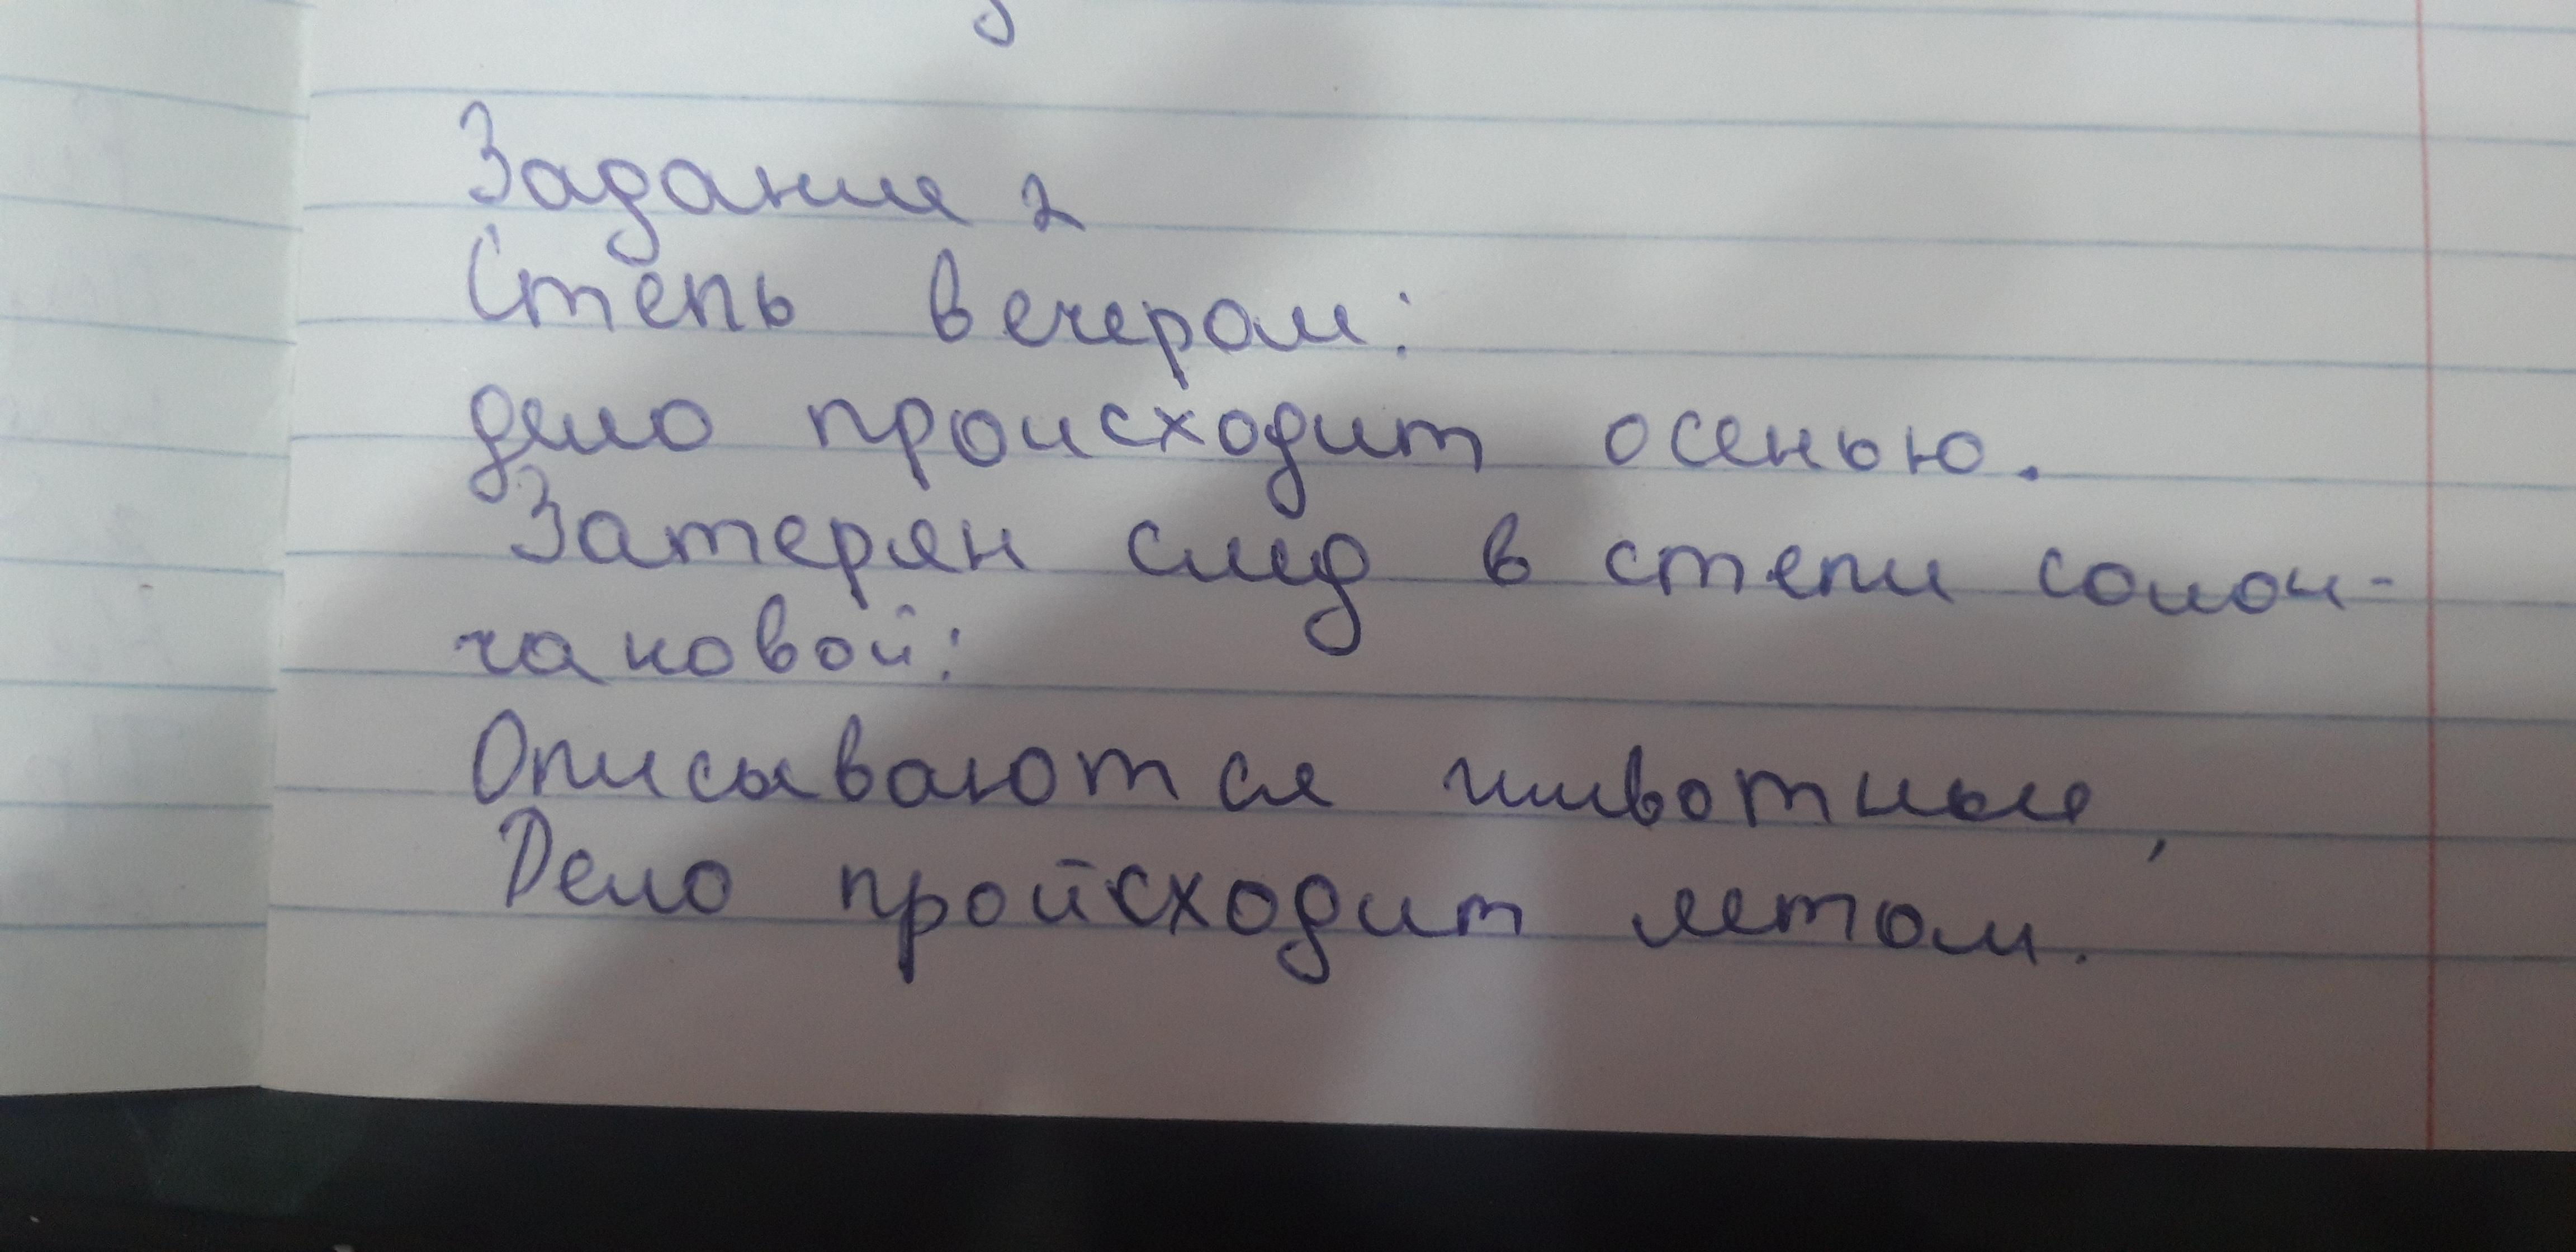 Задание 2
Степь вечером:
дело происходит осенью.
Затерян след в степи солон-
чаковой:
Описываются животные,
Дело пройсходит летом.